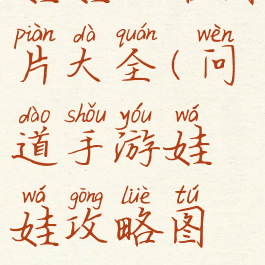 piàn dà quán wèn
片大全(问
dào shǒu yóu wá
道手游娃
wá gōng lüè tú
娃攻略图